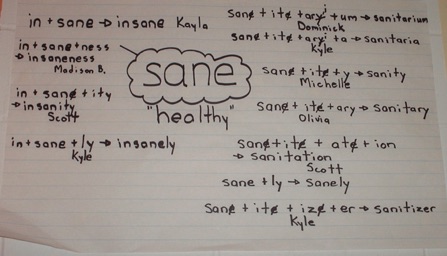 in + sane → insane Kayla
in + sane + ness
→ insaneness
Madison B.
in + sane + ity
→ insanity
Scott
in + sane + ly → insanely
Kyle
sane
"healthy"
sane + ite + ary i + um → sanitarium
Dominick
sane + ite + ary i + a → sanitaria
Kyle
sane + ite + y → sanity
Michelle
sane + ite + ary → sanitary
Olivia
sane + ite + ate + ion
→ sanitation
Scott
sane + ly → sanely
sane + ite + ize + er → sanitizer
Kyle